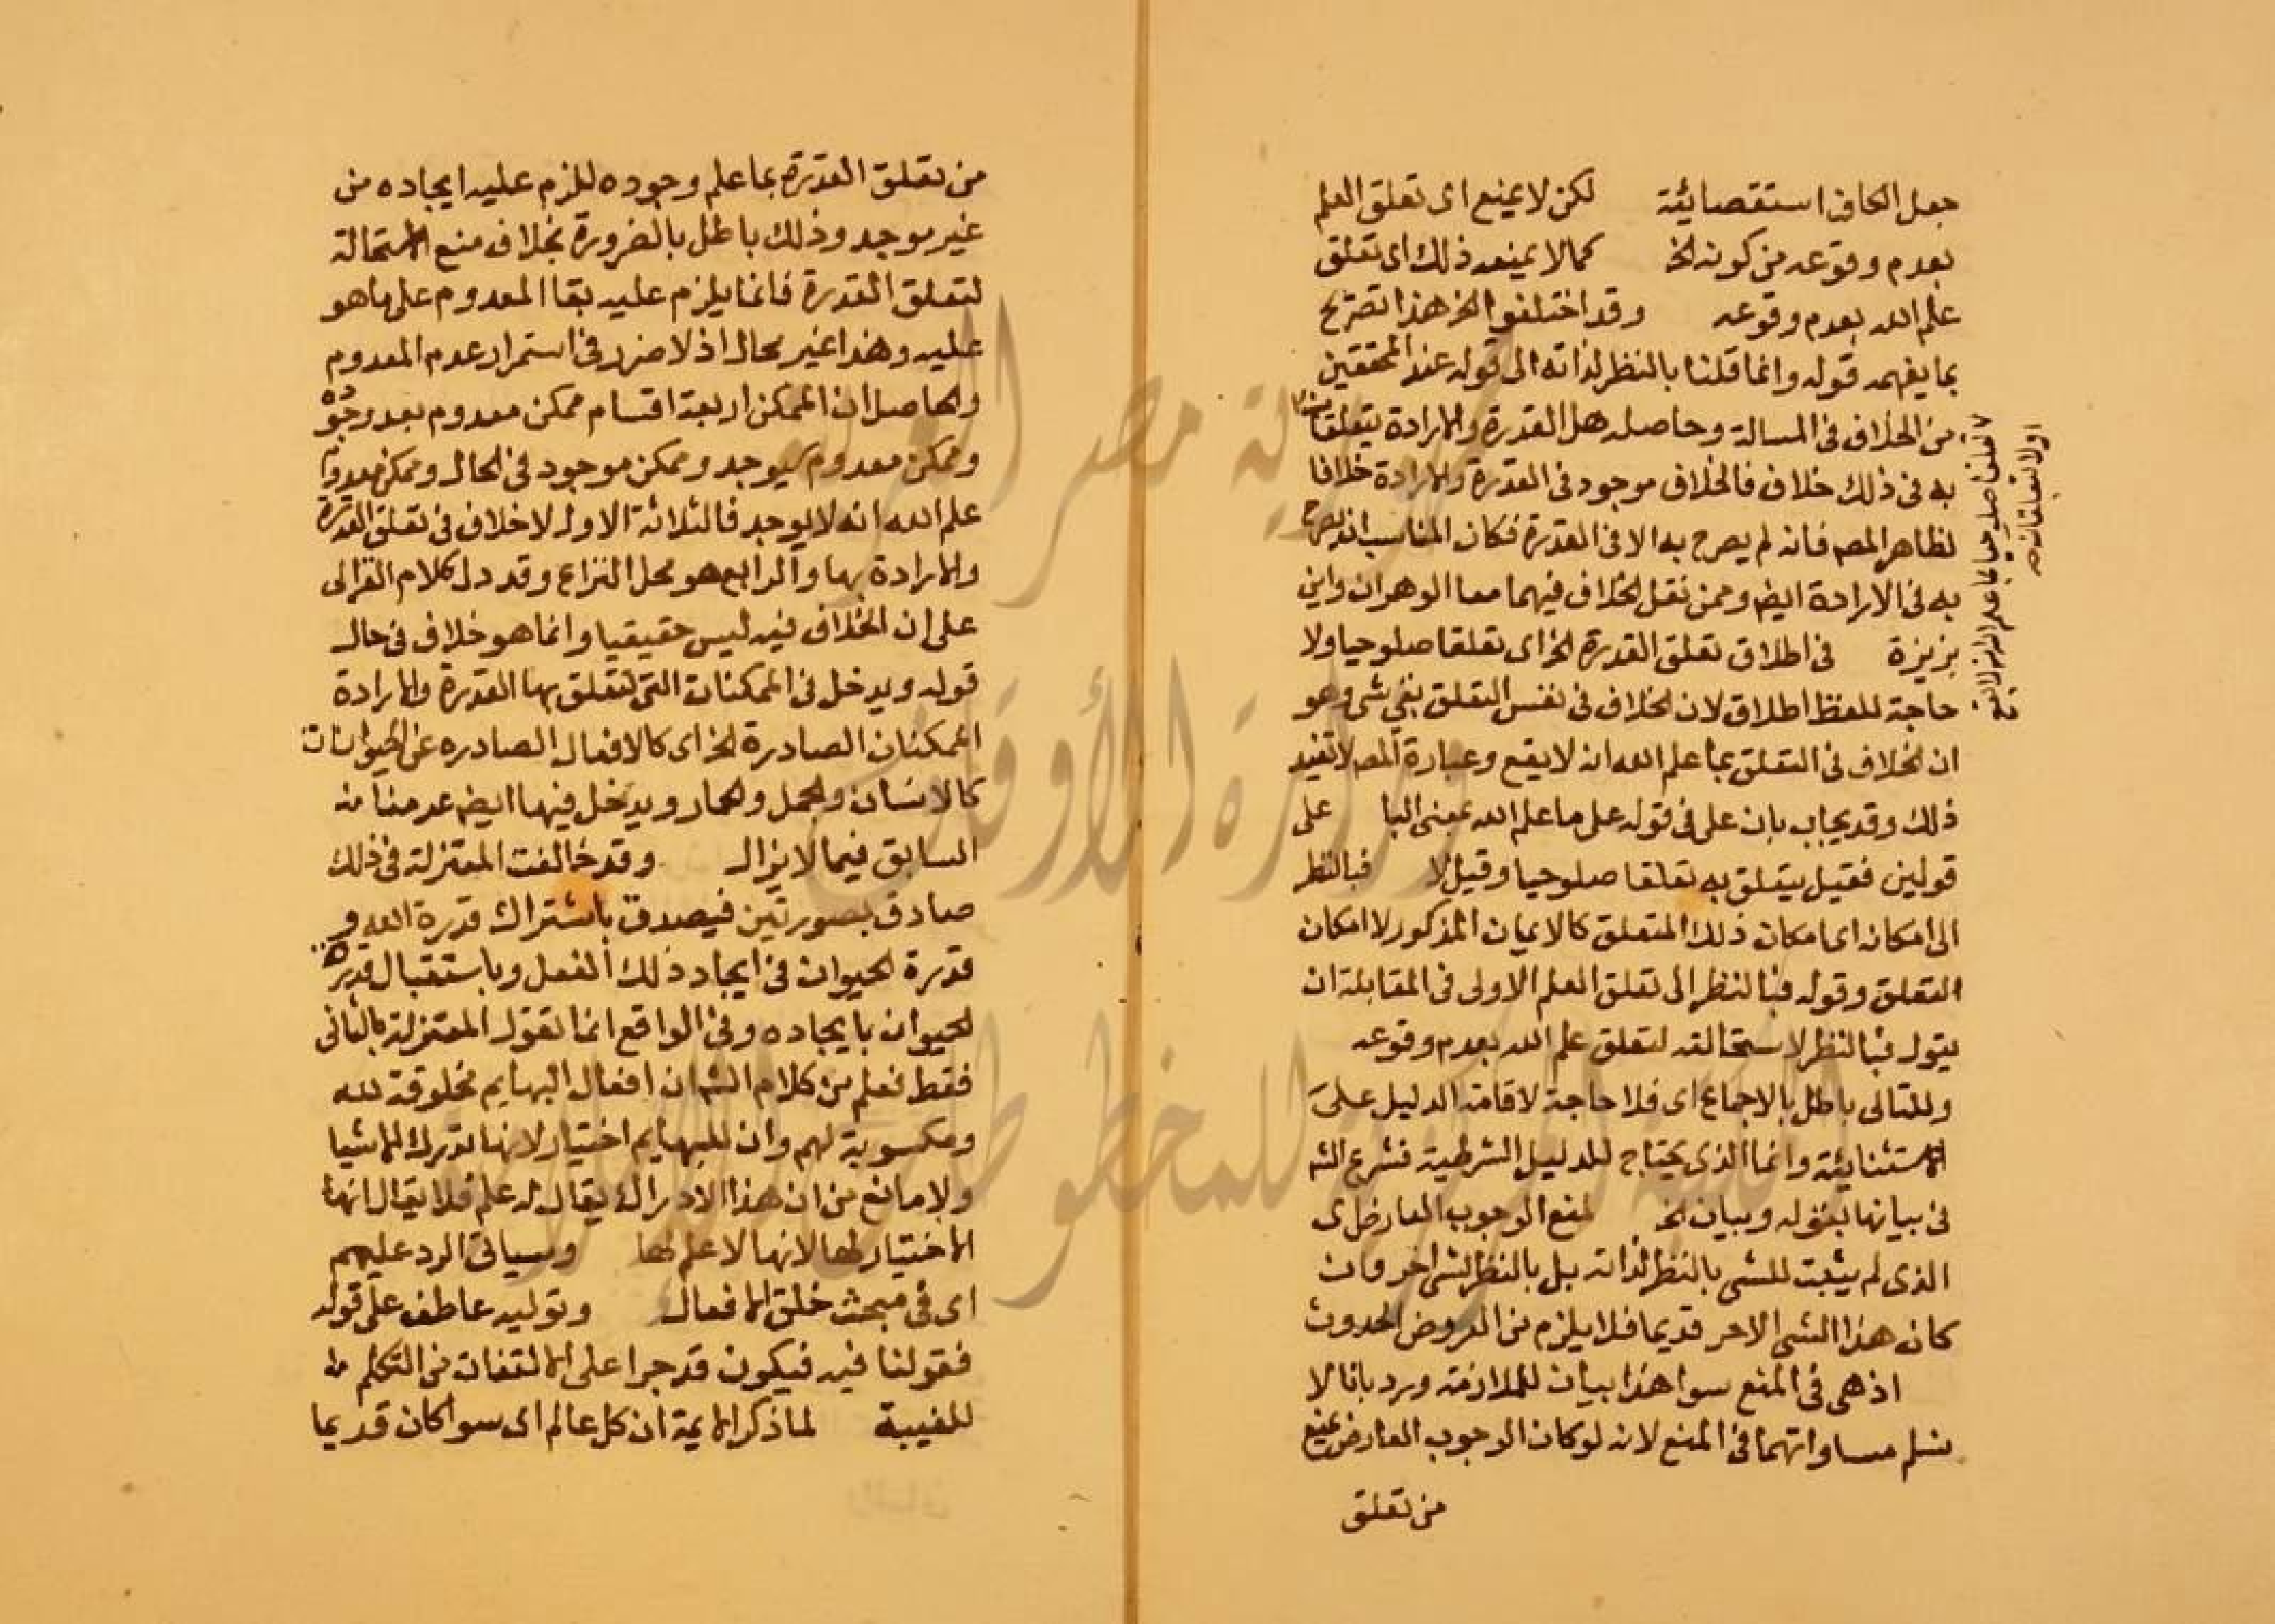 جعل الكاف استقصائية لكن لا يمنع اى تعلق العلم
بعدم وقوعه من كونه الخ كما لا يمنعه ذلك اى تعلق
علم الله بعدم وقوعه وقد اختلفوا الخ هذا تصريح
بما يفهمه قوله وانما قلنا بالنظر لذاته الى قوله عند المحققين
من الخلاف فى المسالة وحاصله هل القدرة والارادة يتعلقان
به فى ذلك خلاف فالخلاف موجود فى القدرة والارادة خلافا
لظاهر المصـ فانه لم يصرح به الا فى القدرة فكان المناسب ان يصرح
به فى الارادة ايضـ وممن نقل الخلاف فيهما معا الوهران وابن
بزيزة فى اطلاق تعلق القدرة الخ اى تعلقا صلوحيا ولا
حاجة للفظ اطلاق لان الخلاف فى نفس التعلق بقى شى وهو
ان الخلاف فى التعلق بما علم الله انه لا يقع وعبارة المصـ لا تفيد
ذلك وقد يجاب بان على فى قوله على ما علم الله بمعنى البا على
قولين فقيل يتعلق به تعلقا صلوحيا وقيل لا فبالنظر
الى امكانه اى امكان ذلك المتعلق كالايمان المذكور لا امكان
التعلق وقوله فبالنظر الى تعلق العلم الاولى فى المقابلة ان
يقول فبالنظر لاستحالته لتعلق علم الله بعدم وقوعه
وللتالى باطل بالاجماع اى فلا حاجة لاقامة الدليل على
الاستثنائية وانما الذى يحتاج للدليل الشرطية فشرع الشـ
فى بيانها بقوله وبيان الخ لمنع الوجوب العارض اى
الذى لم يثبت للشى بالنظر لذاته بل بالنظر لشى اخر وان
كان هذا الشى الاخر قديما فلا يلزم من العروض الحدوث
اذ هى فى المنع سوا هذا بيان للملازمة ورد بانا لا
نسلم مساواتهما فى المنع لانه لو كان الوجوب العارض يمنع
من تعلق
تعلقا صلوحيا بما علم الله انه لا يقع
اولا يتعلقان به
من تعلق القدرة بما علم وجوده للزم عليه ايجاده من
غير موجد وذلك باطل بالضرورة بخلاف منع الاستحالة
لتعلق القدرة فانما يلزم عليه بقا المعدوم على ما هو
عليه وهذا غير محال اذ لا ضرر فى استمرار عدم المعدوم
والحاصل ان الممكن اربعة اقسام ممكن معدوم بعد وجوده
وممكن معدوم سيوجد وممكن موجود فى الحال وممكن معدوم
علم الله انه لا يوجد فالثلاثة الاول لا خلاف فى تعلق القدرة
والارادة بها والرابع هو محل النزاع وقد دل كلام الغزالى
على ان الخلاف فيه ليس حقيقيا وانما هو خلاف فى حال
قوله ويدخل فى الممكنات التى تتعلق بها القدرة والارادة
الممكنات الصادرة الخ اى كالافعال الصادره عن الحيوانات
كالانسان والجمل والحمار ويدخل فيها ايضـ عدمنا
السابق فيما لا يزال وقد خالفت المعتزلة فى ذلك
صادق بصورتين فيصدق باشتراك قدرة الله و
قدرة الحيوان فى ايجاد ذلك الفعل وباستقبال قدرة
الحيوان بايجاده وفى الواقع انما تقول المعتزلة بالثانى
فقط فعلم من كلام الشـ ان افعال البهايم مخلوقة لله
ومكسوبة لهم وان للبهايم اختيار لانها تدرك الاشيا
ولا مانع من ان هذا الادراك يقال له علم فلا يقال انها
لا اختيار لها لانها لا علم لها وسياتى الرد عليهم
اى فى مبحث خلق الافعال وتوليد عاطف على قوله
فقولنا فيه فيكون قد جرا على الالتفات من التكلم
للغيبة لما ذكر الايمة ان كل عالم اى سوا كان قديما